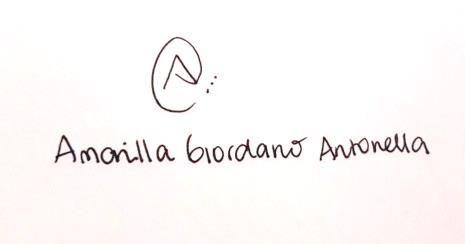 Amarilla Giordano Antonella